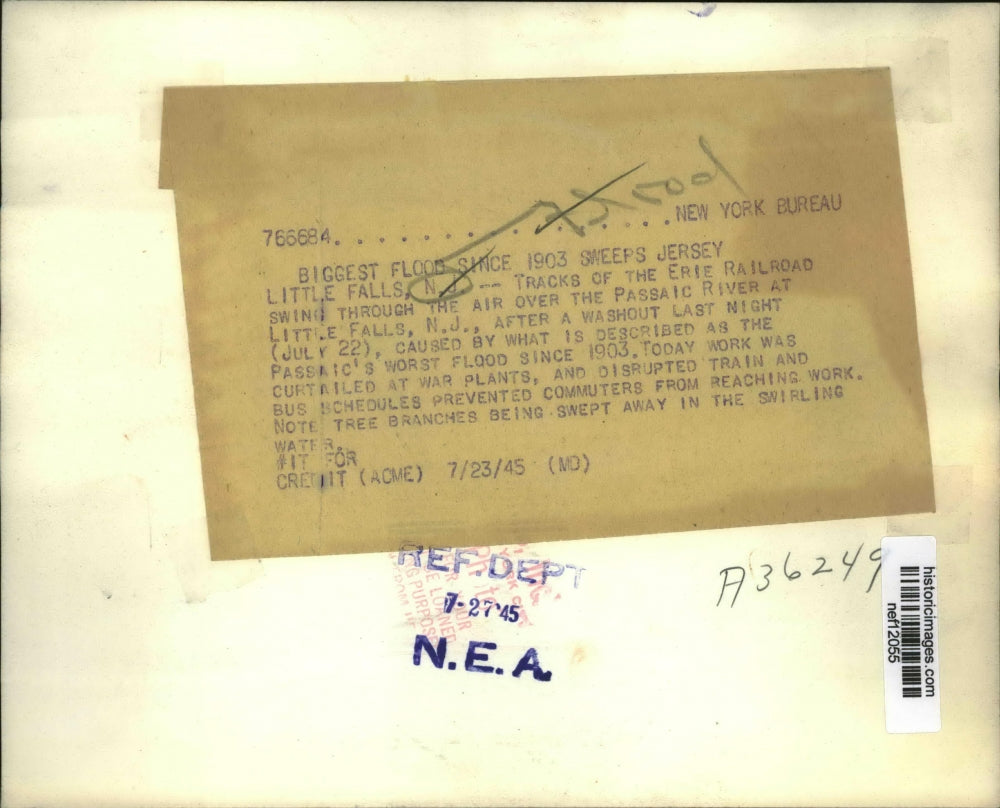 Flood
766684. . . . . . . . . . . . . . . . . .NEW YORK BUREAU
BIGGEST FLOOD SINCE 1903 SWEEPS JERSEY
LITTLE FALLS, N.J. -- TRACKS OF THE ERIE RAILROAD
SWING THROUGH THE AIR OVER THE PASSAIC RIVER AT
LITTLE FALLS, N.J., AFTER A WASHOUT LAST NIGHT
(JULY 22), CAUSED BY WHAT IS DESCRIBED AS THE
PASSAIC'S WORST FLOOD SINCE 1903. TODAY WORK WAS
CURTAILED AT WAR PLANTS, AND DISRUPTED TRAIN AND
BUS SCHEDULES PREVENTED COMMUTERS FROM REACHING WORK.
NOTE TREE BRANCHES BEING SWEPT AWAY IN THE SWIRLING
WATER.
#IT FOR
CREDIT (ACME) 7/23/45 (MD)
REF. DEPT
7-27'45
N.E.A.
A36249
historicimages.com
nef12055